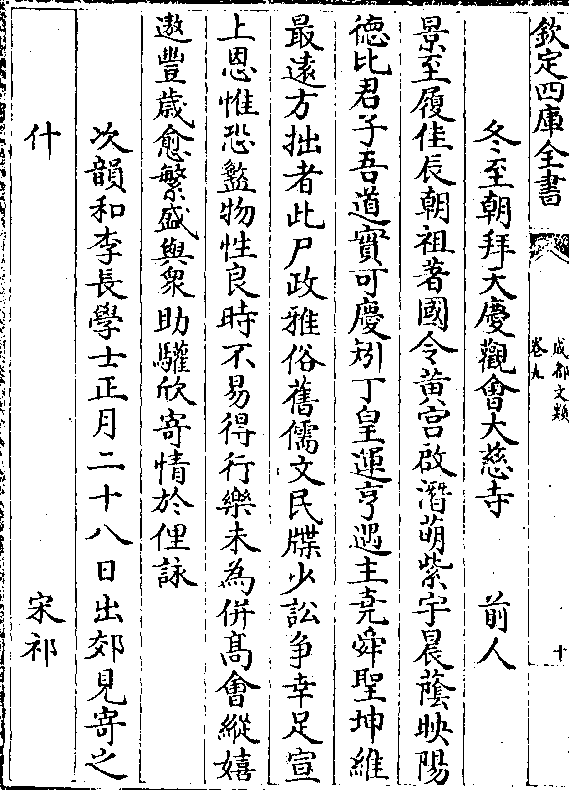 欽定四庫全書
成都文類
卷九
十
冬至朝拜天慶觀會大慈寺 前人
景至履佳辰朝祖著國令黃宮啟潛萌紫宇晨䕃映陽
德比君子吾道實可慶矧丁皇運亨遇主堯舜聖坤維
最逺方拙者此尸政雅俗舊儒文民牒少訟争幸足宣
上恩惟恐盭物性良時不易得行樂未為併髙會縱嬉
遨豐歳愈繁盛與衆助驩欣寄情於俚詠
次韻和李長學士正月二十八日出郊見寄之
什 宋祁